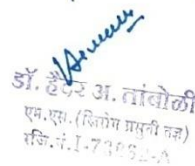 डॉ. हैदर अ. तांबोळी
एम.एस. (स्त्रिरोग प्रसुती तज्ञ)
रजि. नं. I-73